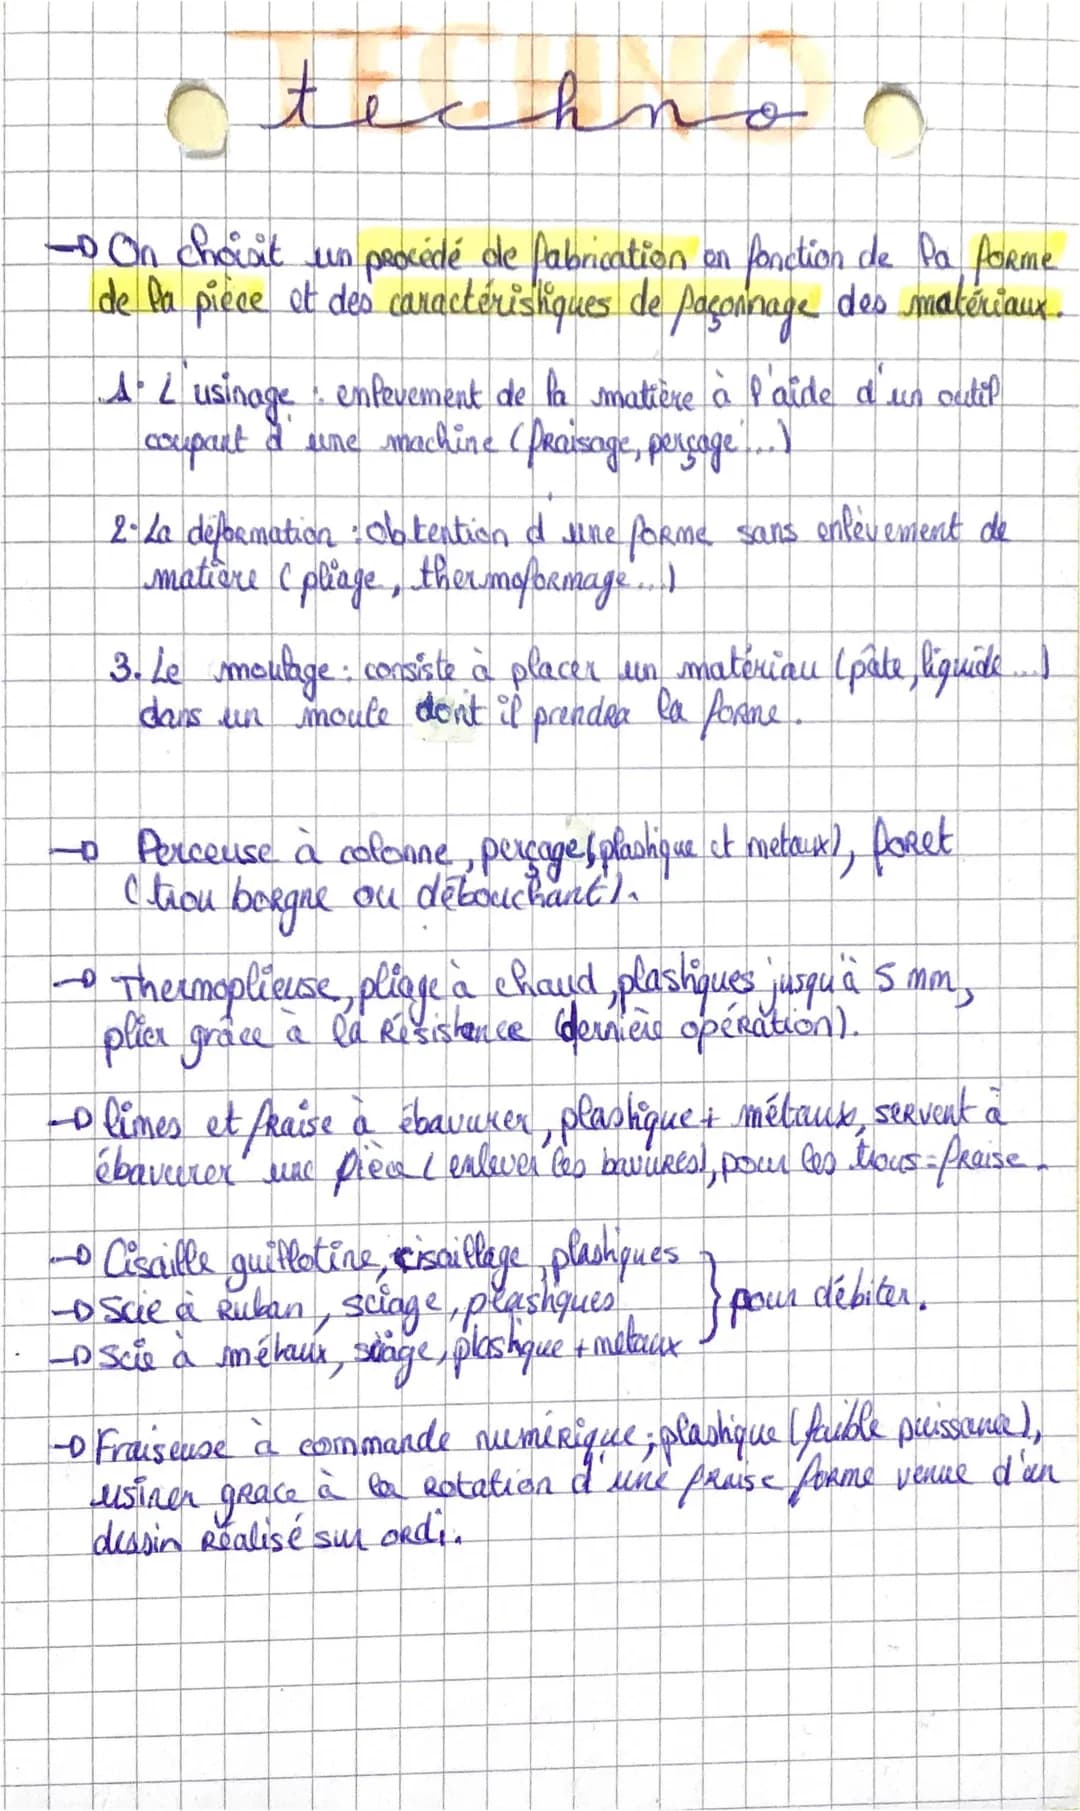 TECHNO
techno
→ On choisit un procédé de fabrication en fonction de la forme
de la pièce et des caractéristiques de façonnage des matériaux.
1• L'usinage : enlevement de la matière à l'aide d'un outil
coupant d'une machine (fraisage, perçage...)
2• La déformation : obtention d'une forme sans enlèvement de
matière (pliage, thermoformage...)
3. Le moulage : consiste à placer un matériau (pâte, liquide...)
dans un moule dont il prendra la forme.
→ Perceuse à colonne, perçage (plastique et metaux), foret
(trou borgne ou débouchant).
→ Thermoplieuse, pliage à chaud, plastiques jusqu'à 5 mm,
plier grâce à la résistance (dernière opération).
→ limes et fraise à ébavurer, plastique + métaux, servent à
ébavurer une pièce (enlever les bavures), pour les trous = fraise.
→ Cisaille guillotine, cisaillage, plastiques
→ Scie à Ruban, sciage, plastiques } pour débiter.
→ Scie à métaux, sciage, plastique + metaux
→ Fraiseuse à commande numérique ; plastique (faible puissance),
usiner grace à la rotation d'une fraise forme venue d'un
dessin réalisé sur ordi.